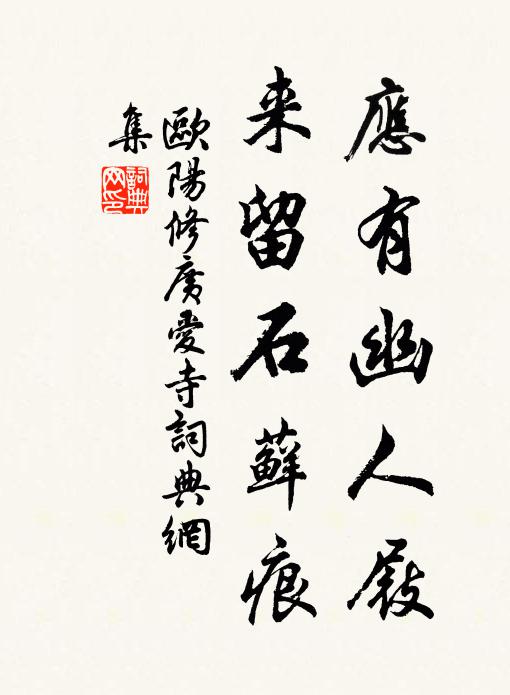 應有幽人屐
来留石蘚痕
歐陽修廣愛寺詞典網
集
詞典網印